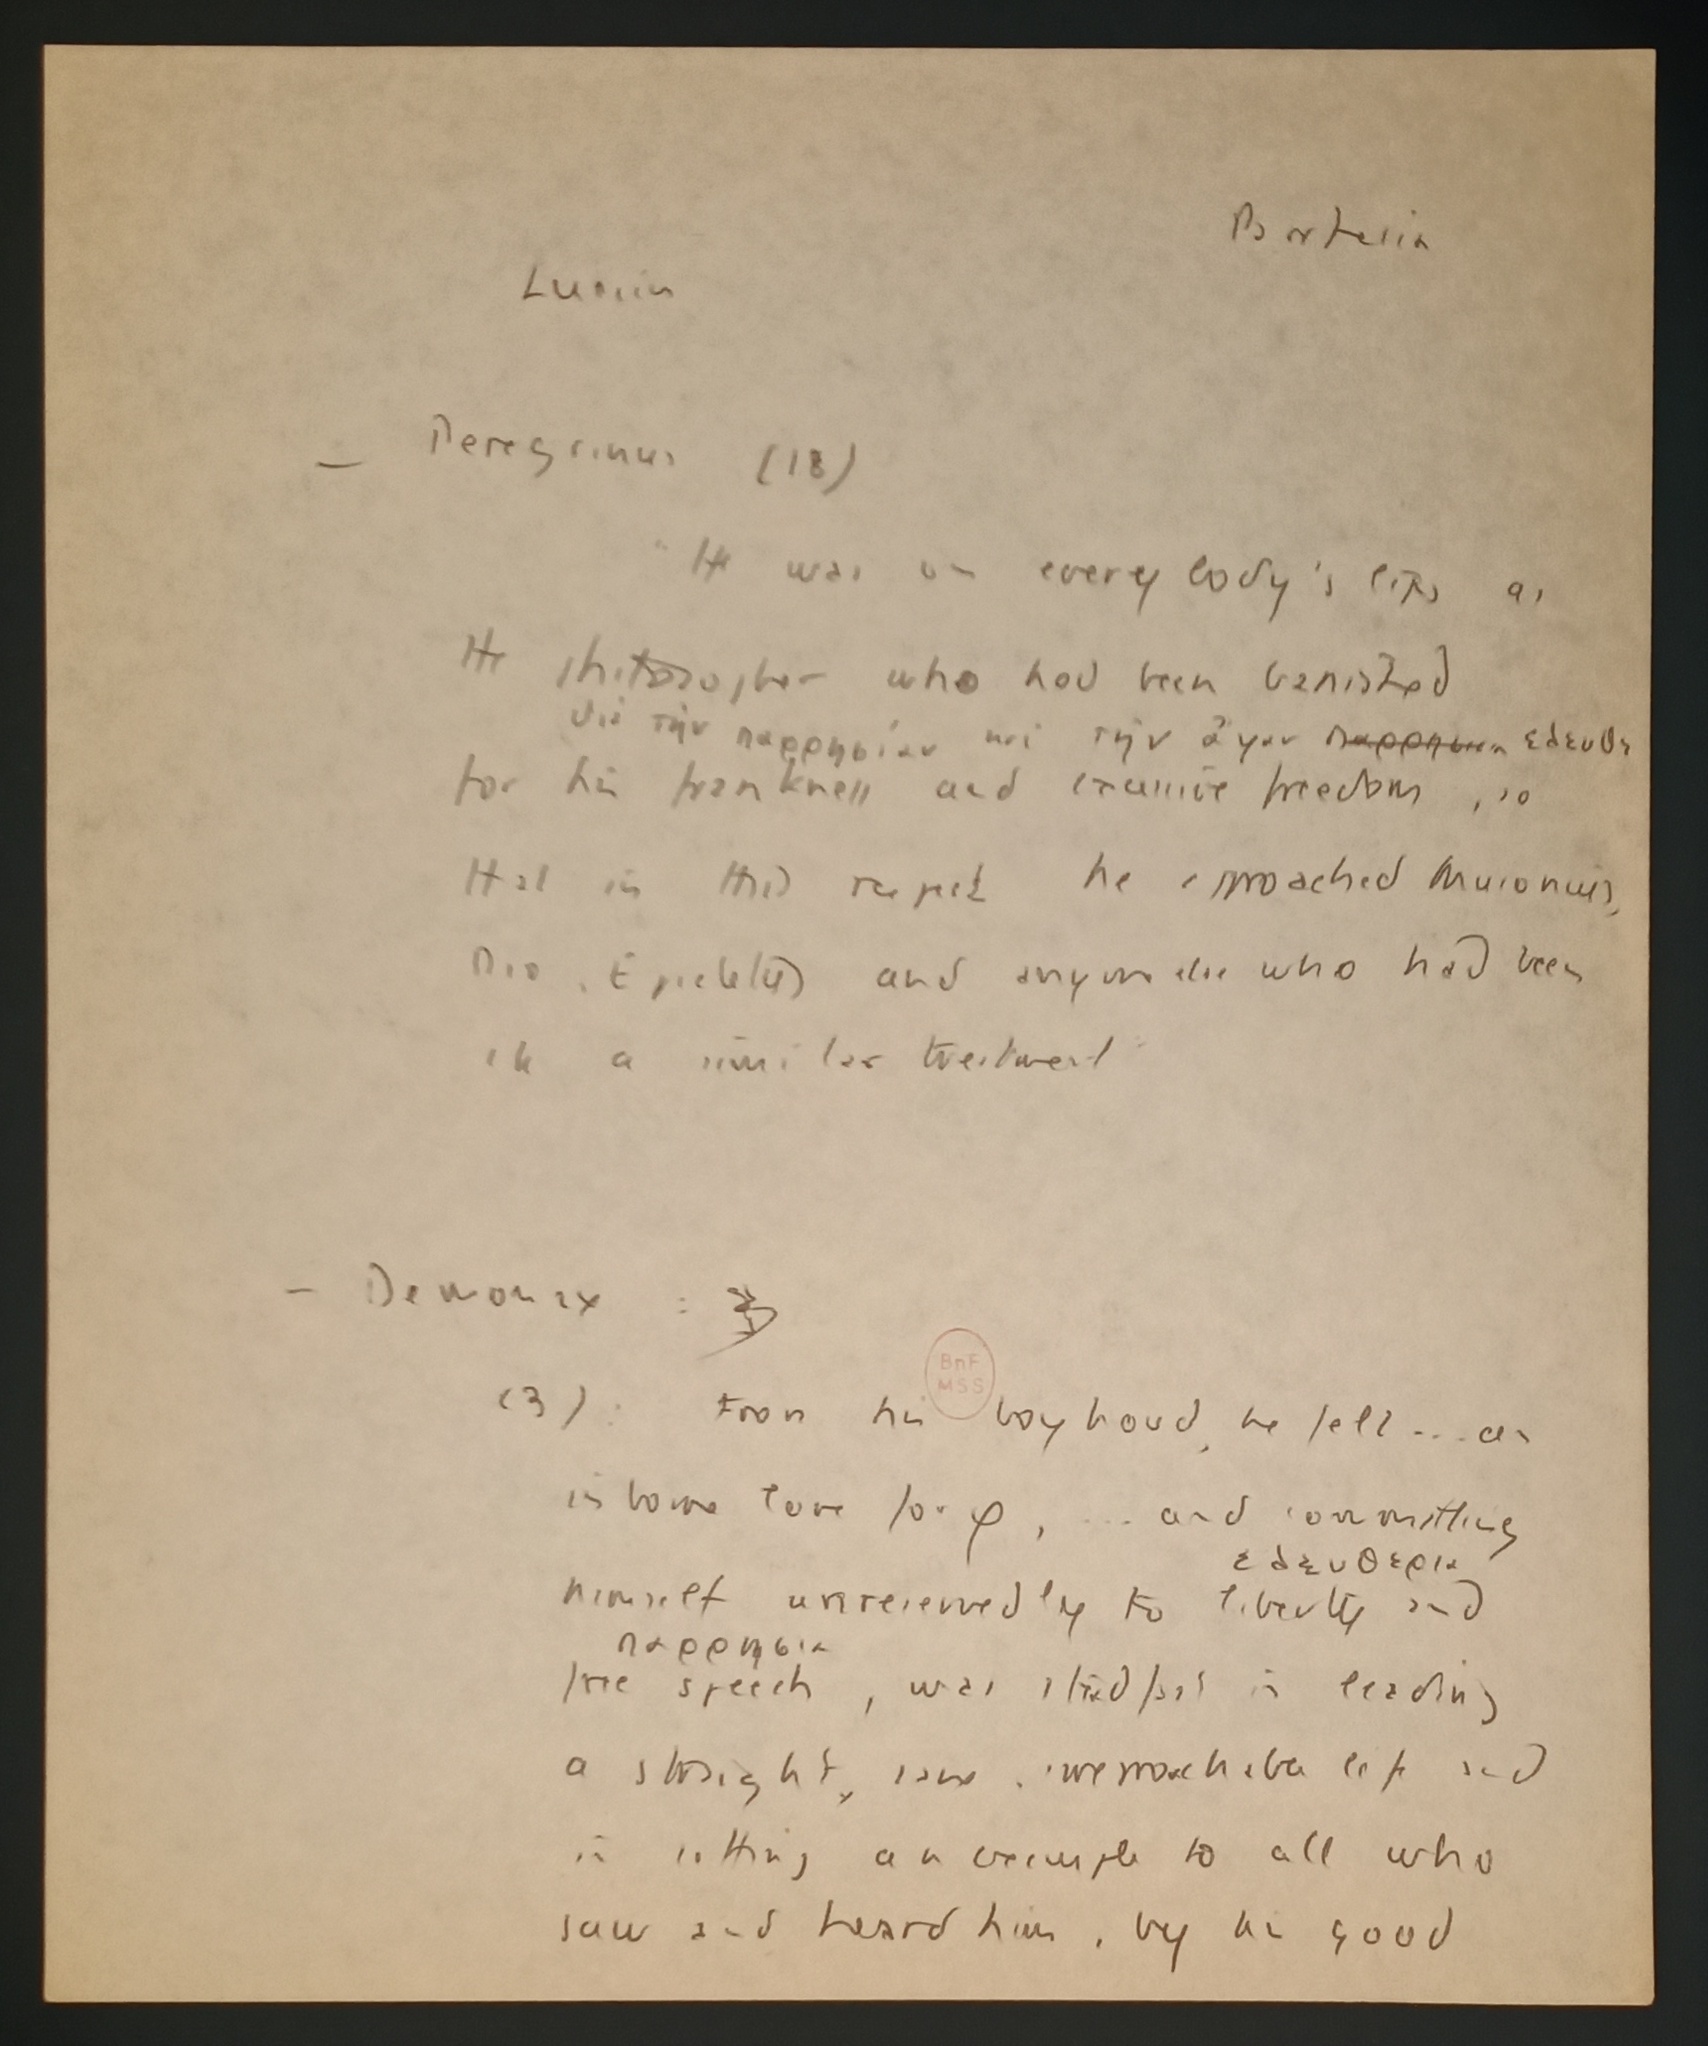 Parrhesia
Lucian
— Peregrinus (18)
"He was on every body's lips as
the philosopher who had been banished
διὰ τὴν παρρησίαν καὶ τὴν ἄγαν παρρησιαν ελευθε
for his frankness and excessive freedom, so
that in this respect he approached Musonius,
Dio, Epictetus and anyone else who had been
in a similar treatment"
— Demonax :
(3) : From his boyhood, he felt ... an
BnF
MSS
inborne love for φ, ... and committing
ελευθερια
himself unreservedly to liberty and
παρρησια
free speech, was steadfast in leading
a straight, sane, irreproachable life and
in setting an example to all who
saw and heard him, by his good